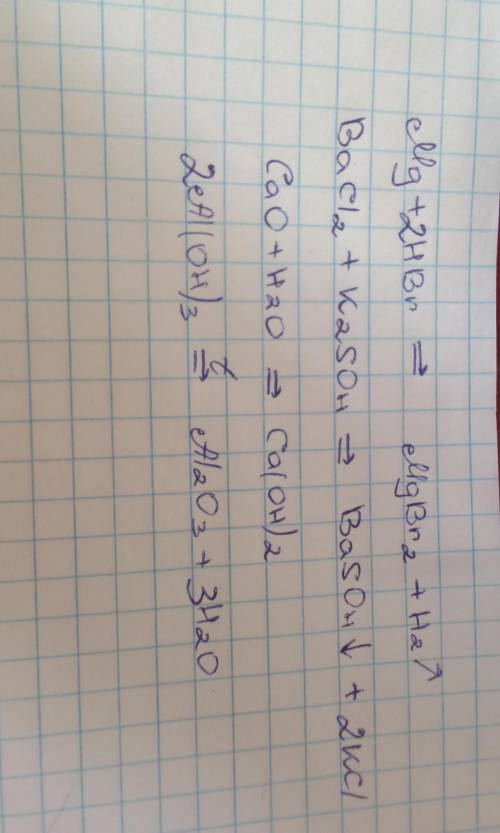 Mg + 2HBr ⇒ MgBr2 + H2↑
BaCl2 + K2SO4 ⇒ BaSO4↓ + 2KCl
CaO + H2O ⇒ Ca(OH)2
2Al(OH)3 t⇒ Al2O3 + 3H2O